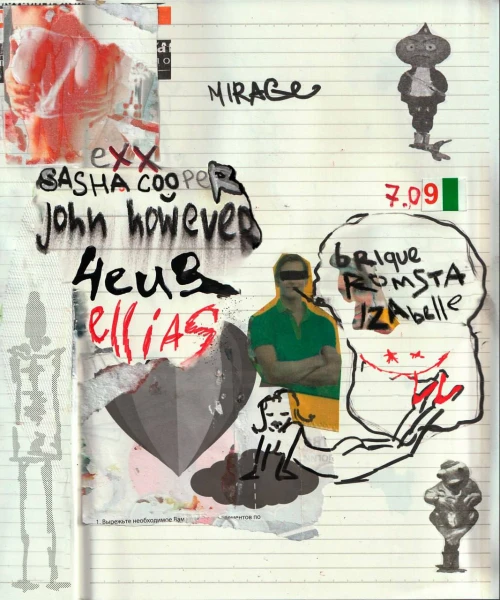 MIRAGe
exx
SASHA COOPeR
john however
7.09
4eus
ellias
brique
ROMSTA
IZAbelle
1. Вырежьте необходимле